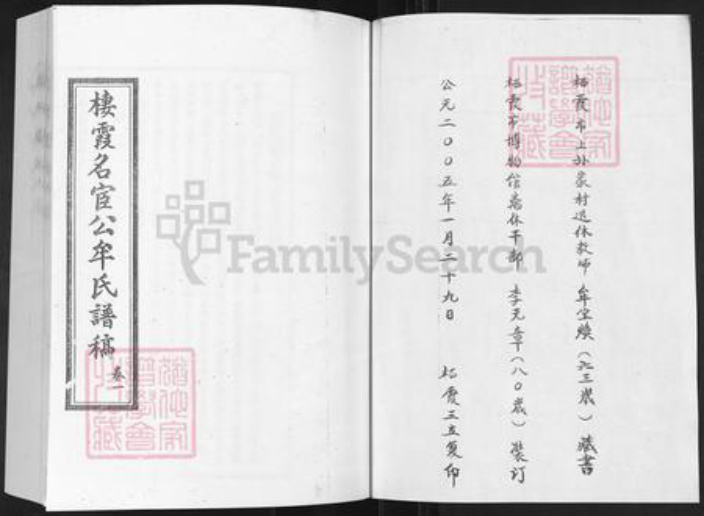 棲霞名宦公牟氏譜稿
卷一
栖霞市上孙家村退休教师 牟宝焕（六三岁）藏書
栖霞市博物馆离休干部 李元章（八〇岁）装订
公元二〇〇五年一月二十九日 栖霞三立复印
FamilySearch